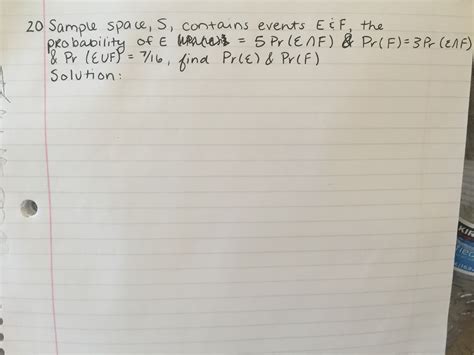 20 Sample space, S, contains events E & F, the
probability of E = 5 Pr (E∩F) & Pr(F)=3Pr (E∩F)
& Pr (E∪F) = 7/16, find Pr(E) & Pr(F)
Solution: